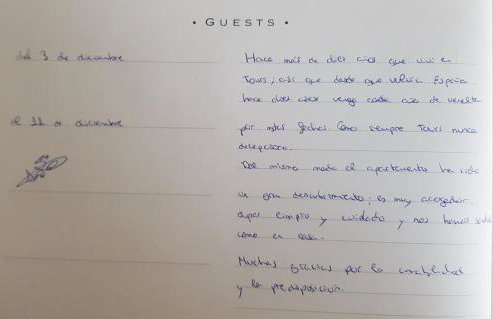 • GUESTS •
del 3 de diciembre
al 11 de diciembre
Hace más de diez años que viví en
Tours, así que desde que volví a España
hace diez años vengo cada año de
por estas fechas. Como siempre Tours nunca
decepciona.
Del mismo modo el apartamento ha sido
un gran descubrimiento; es muy acogedor,
limpio y cuidado y nos hemos
como en casa.
Muchas gracias por la amabilidad
y la predisposición.